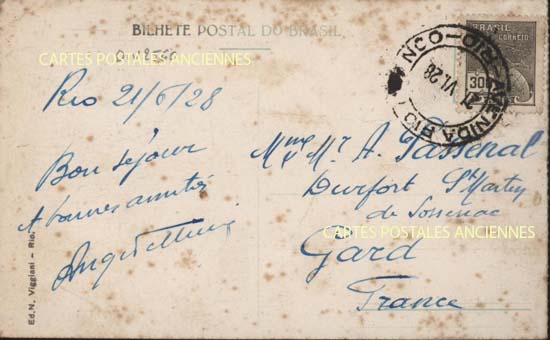 BILHETE POSTAL DO BRASIL
CARTES POSTALES ANCIENNES
BRASIL
CORREIO
RIO - AVENIDA RIO
NCO
21 VI 28
Rio 21/6/28
Bon séjour
Mme & Mr A. Passenal
Durfort St Martin
de Sossenac
CARTES POSTALES ANCIENNES
Gard
France
Ed. N. Viggiani - Rio.